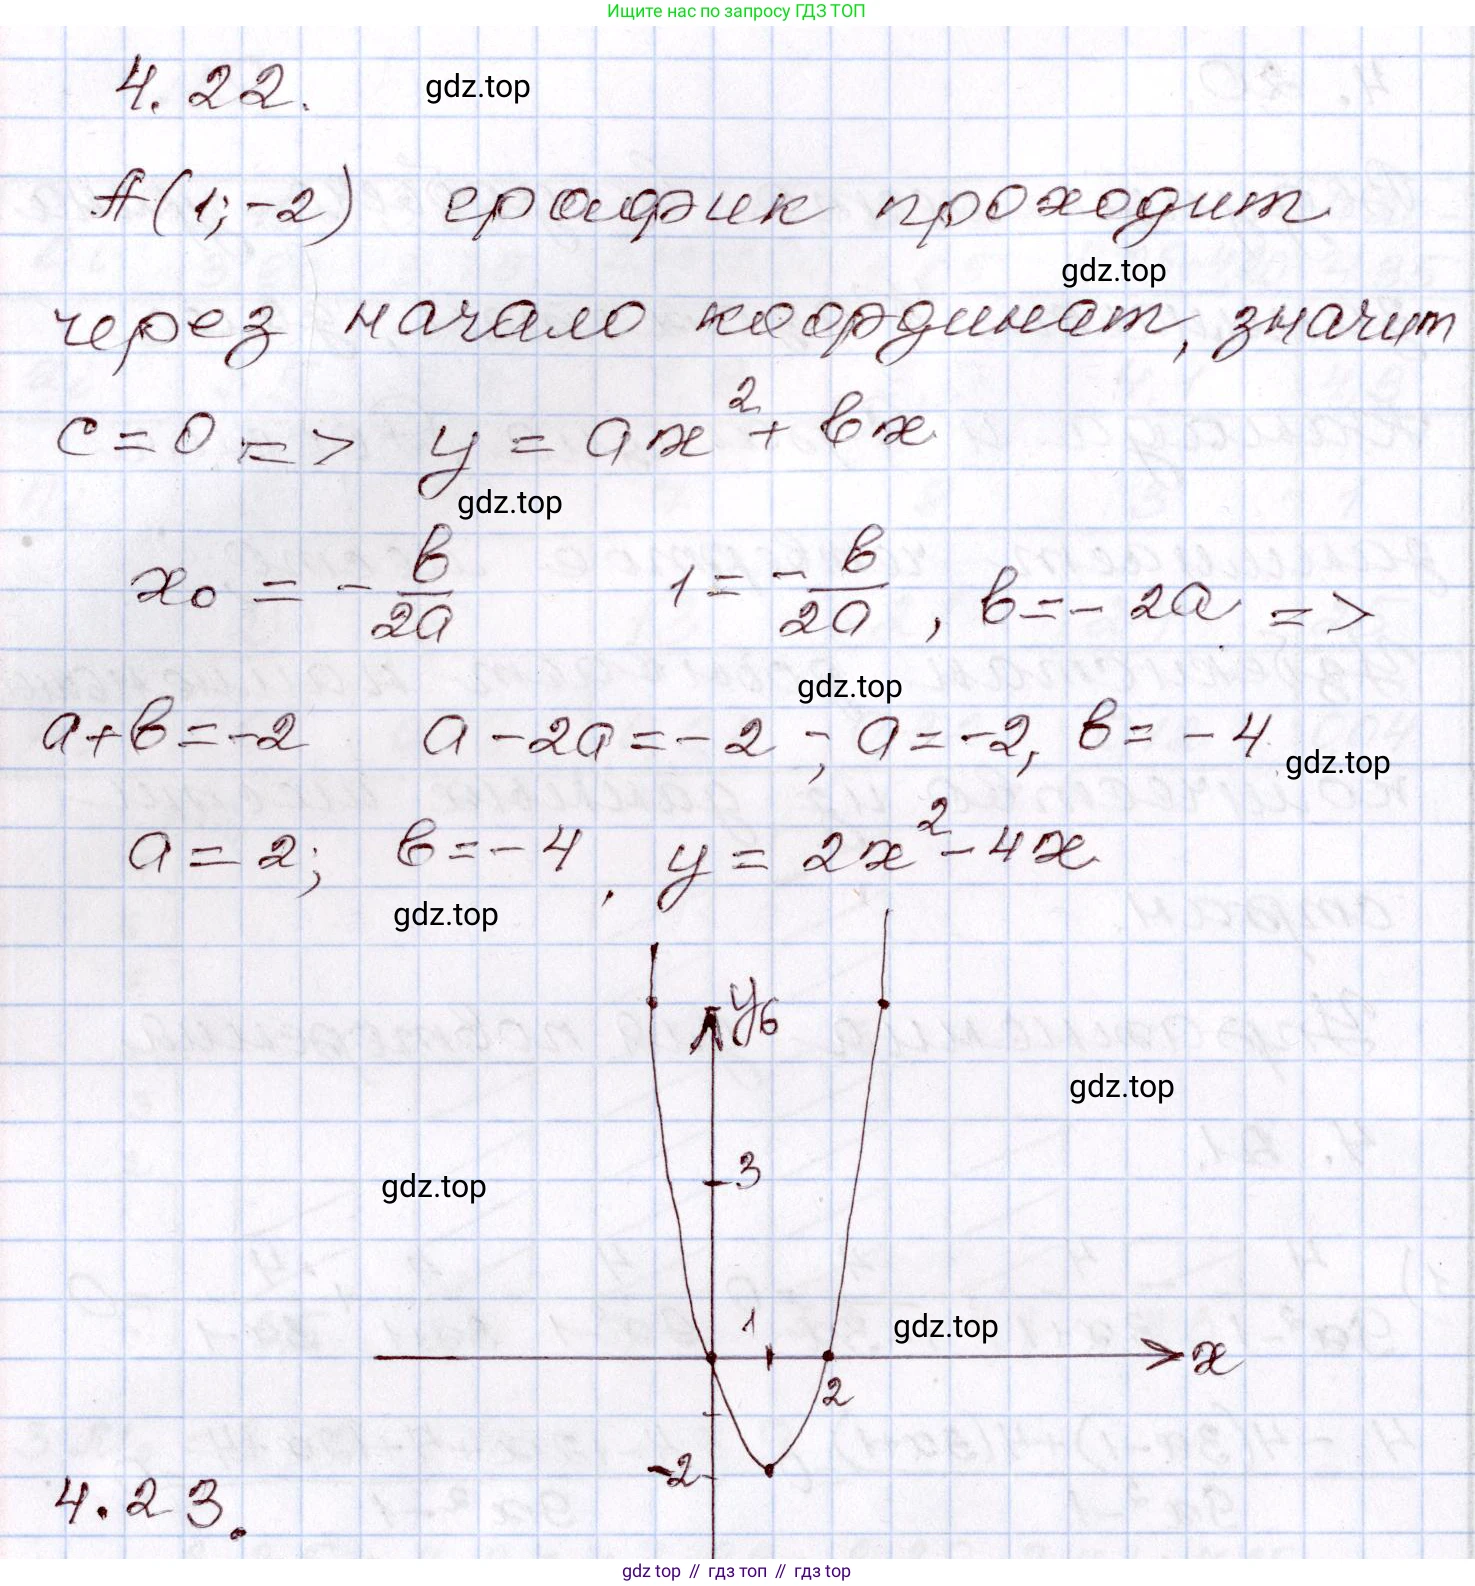 Ищите нас по запросу ГДЗ ТОП
4.22.
gdz.top
A(1;-2) график проходит
gdz.top
через начало координат, значит
c=0 => y = ax²+ вx
gdz.top
x₀ = -в/2a   1 = -в/2a , в=-2a =>
gdz.top
a+в=-2   a-2a=-2 ; a=-2, в=-4
gdz.top
a=2; в=-4, y = 2x²-4x
gdz.top
y 6
gdz.top
3
gdz.top
1
gdz.top
x
2
-2
4.23.
gdz top // гдз топ // гдз top